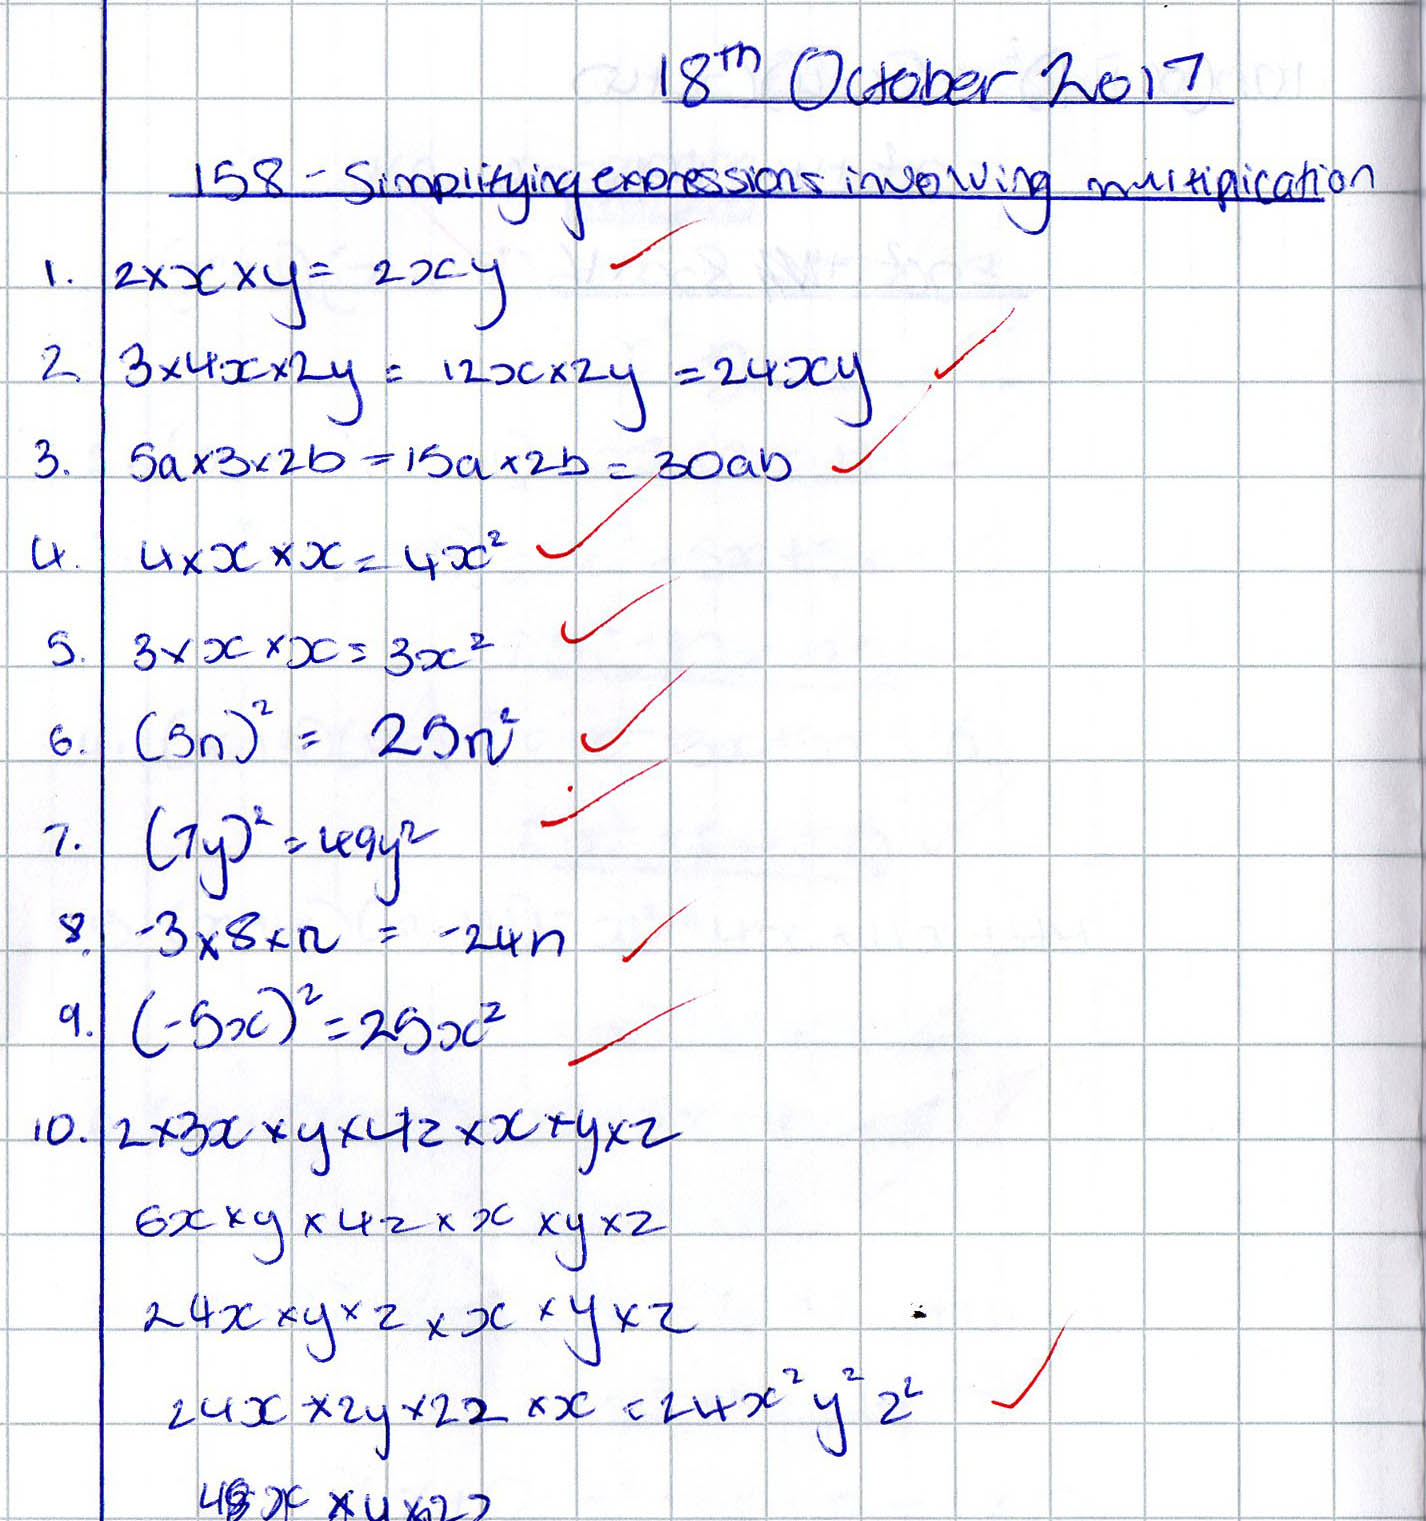 18th October 2017
158 - Simplifying expressions involving multipication
1. 2 × x × y = 2xy
2. 3 × 4x × 2y = 12x × 2y = 24xy
3. 5a × 3 × 2b = 15a × 2b = 30ab
4. 4 × x × x = 4x²
5. 3 × x × x = 3x²
6. (5n)² = 25n²
7. (7y)² = 49y²
8. -3 × 8 × n = -24n
9. (-5x)² = 25x²
10. 2 × 3x × y × 4z × x × y × z
6x × y × 4z × x × y × z
24x × y × z × x × y × z
24x × 2y × 2z × x = 24x²y²z²
48x × y × 2z